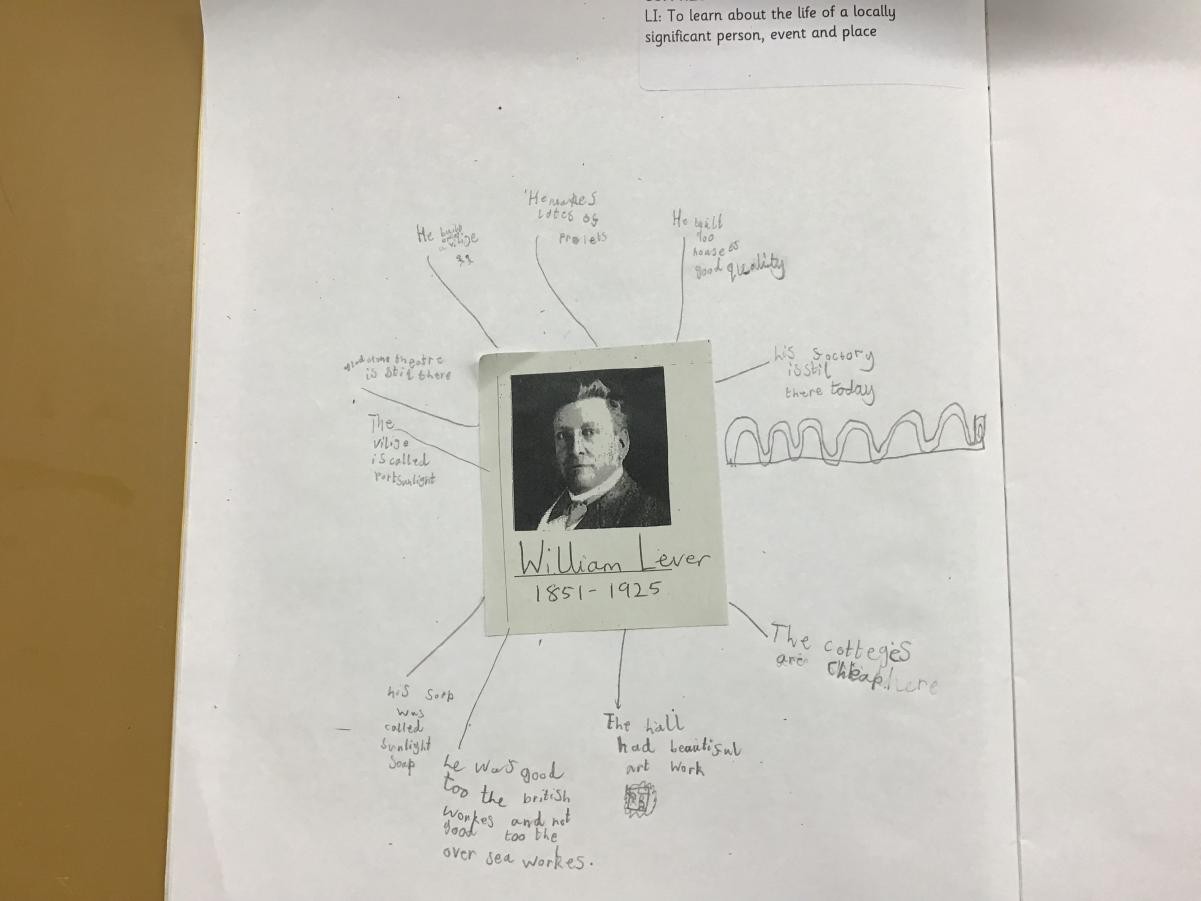 LI: To learn about the life of a locally
significant person, event and place
He
vilige
He makes
lotes of
projets
He built
700
houses
good quality
theatre
is still there
The
vilige
is called
Port sunlight
his factory
is stil
there today
William Lever
1851-1925
The cotteges
are cheap here
his soap
was
called
sunlight
soap
he was good
too the british
workes and not
good too the
over sea workes.
The hall
had beautiful
art work